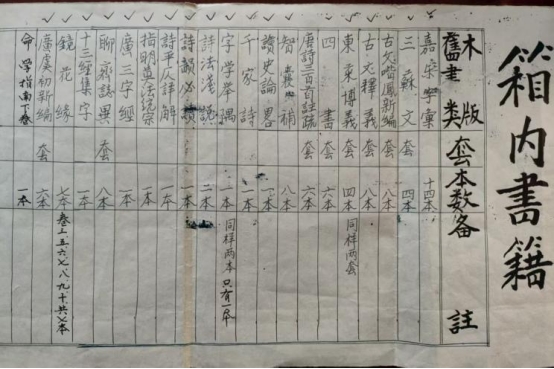 箱内書籍
木版舊書類 套 本数 备註
字彙 十四本
三蘇文 套 四本
古文嗜鳳新編 套 八本
古文釋義 套 八本
東萊博義 套 四本 同样两套
四書 套 六本
唐詩三百首註疏 套 六本
智囊補 八本
讀史論畧 一本
千家詩 一本
字学举隅 一本 同样两本 只有一本
詩法淺說 二本
詩韻 一本
詩平仄詳解 一本
指明算法统宗 一本
廣三字經 一本
聊齋誌異 套 八本
十三經集字 一本
鏡花緣 七本 卷上五六七八九十共七本
廣虞初新編 套 六本
命學指南下卷 一本